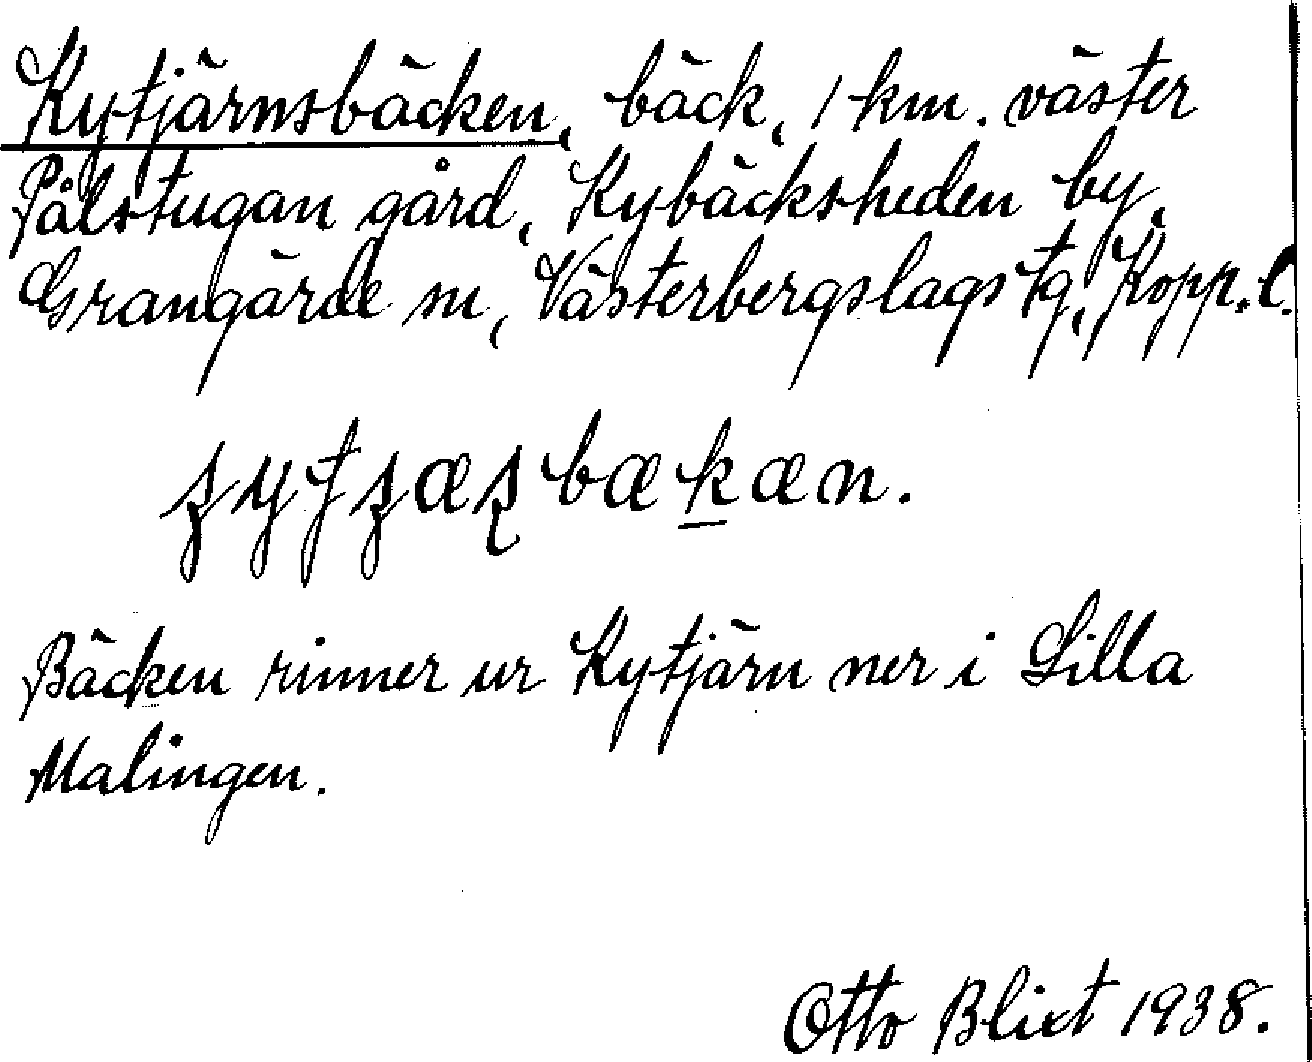 Kytjärnsbäcken, bäck, 1 km. väster
Pålstugan gård, Kybäcksheden by,
Grangärde sn, Västerbergslags tg, Kopp. l.
bækæn.
Bäcken rinner ur Kytjärn ner i Lilla
Malingen.
Otto Blixt 1938.